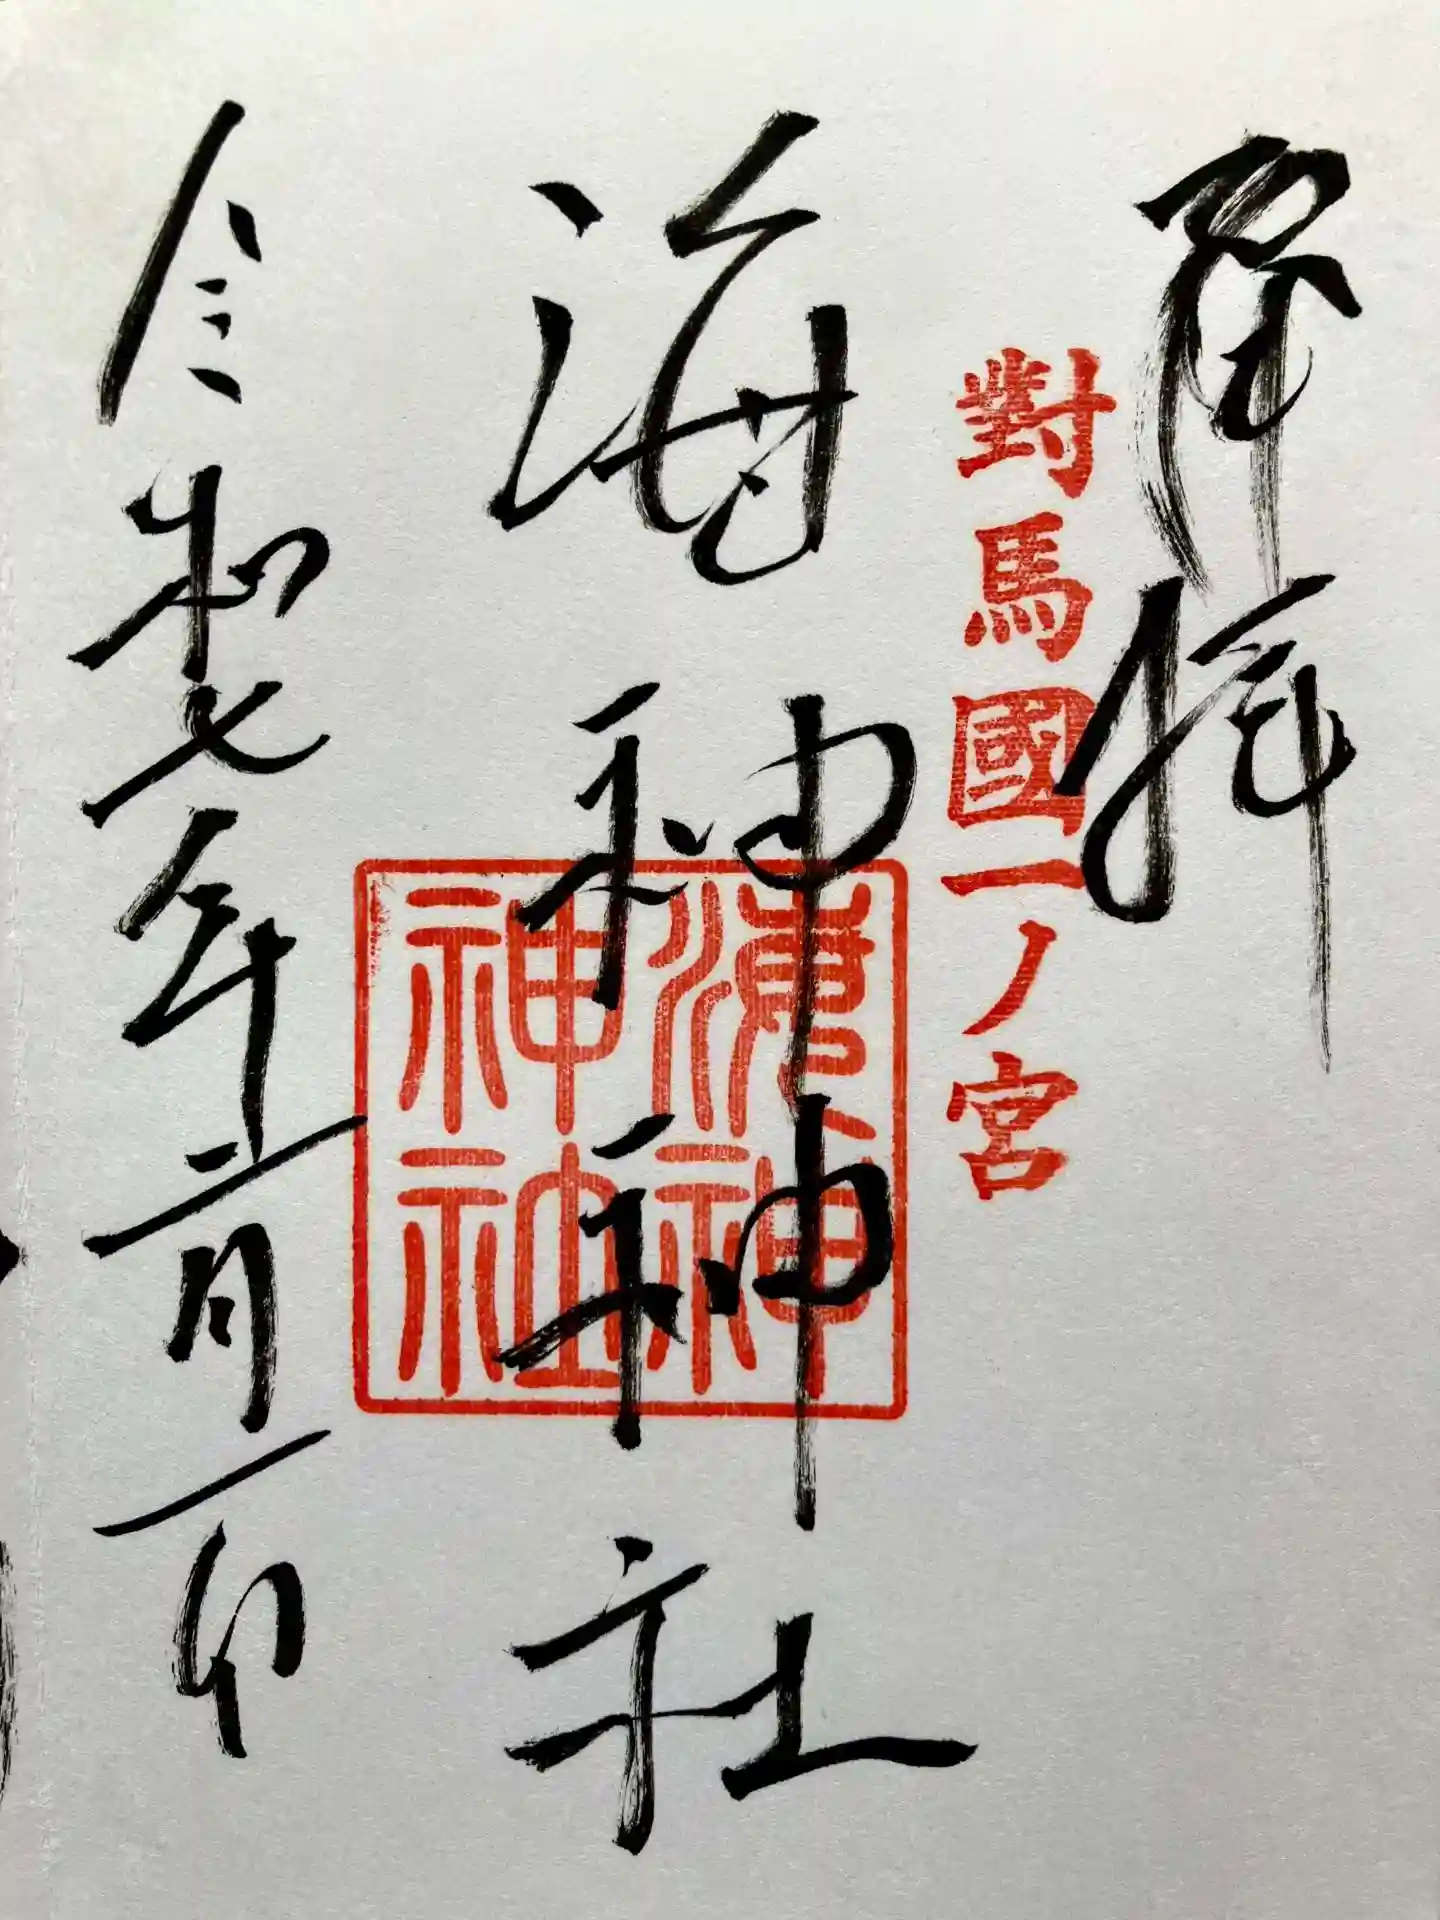 奉拝
對馬國一ノ宮
海神神社
海神
神社
令和七年二月一日